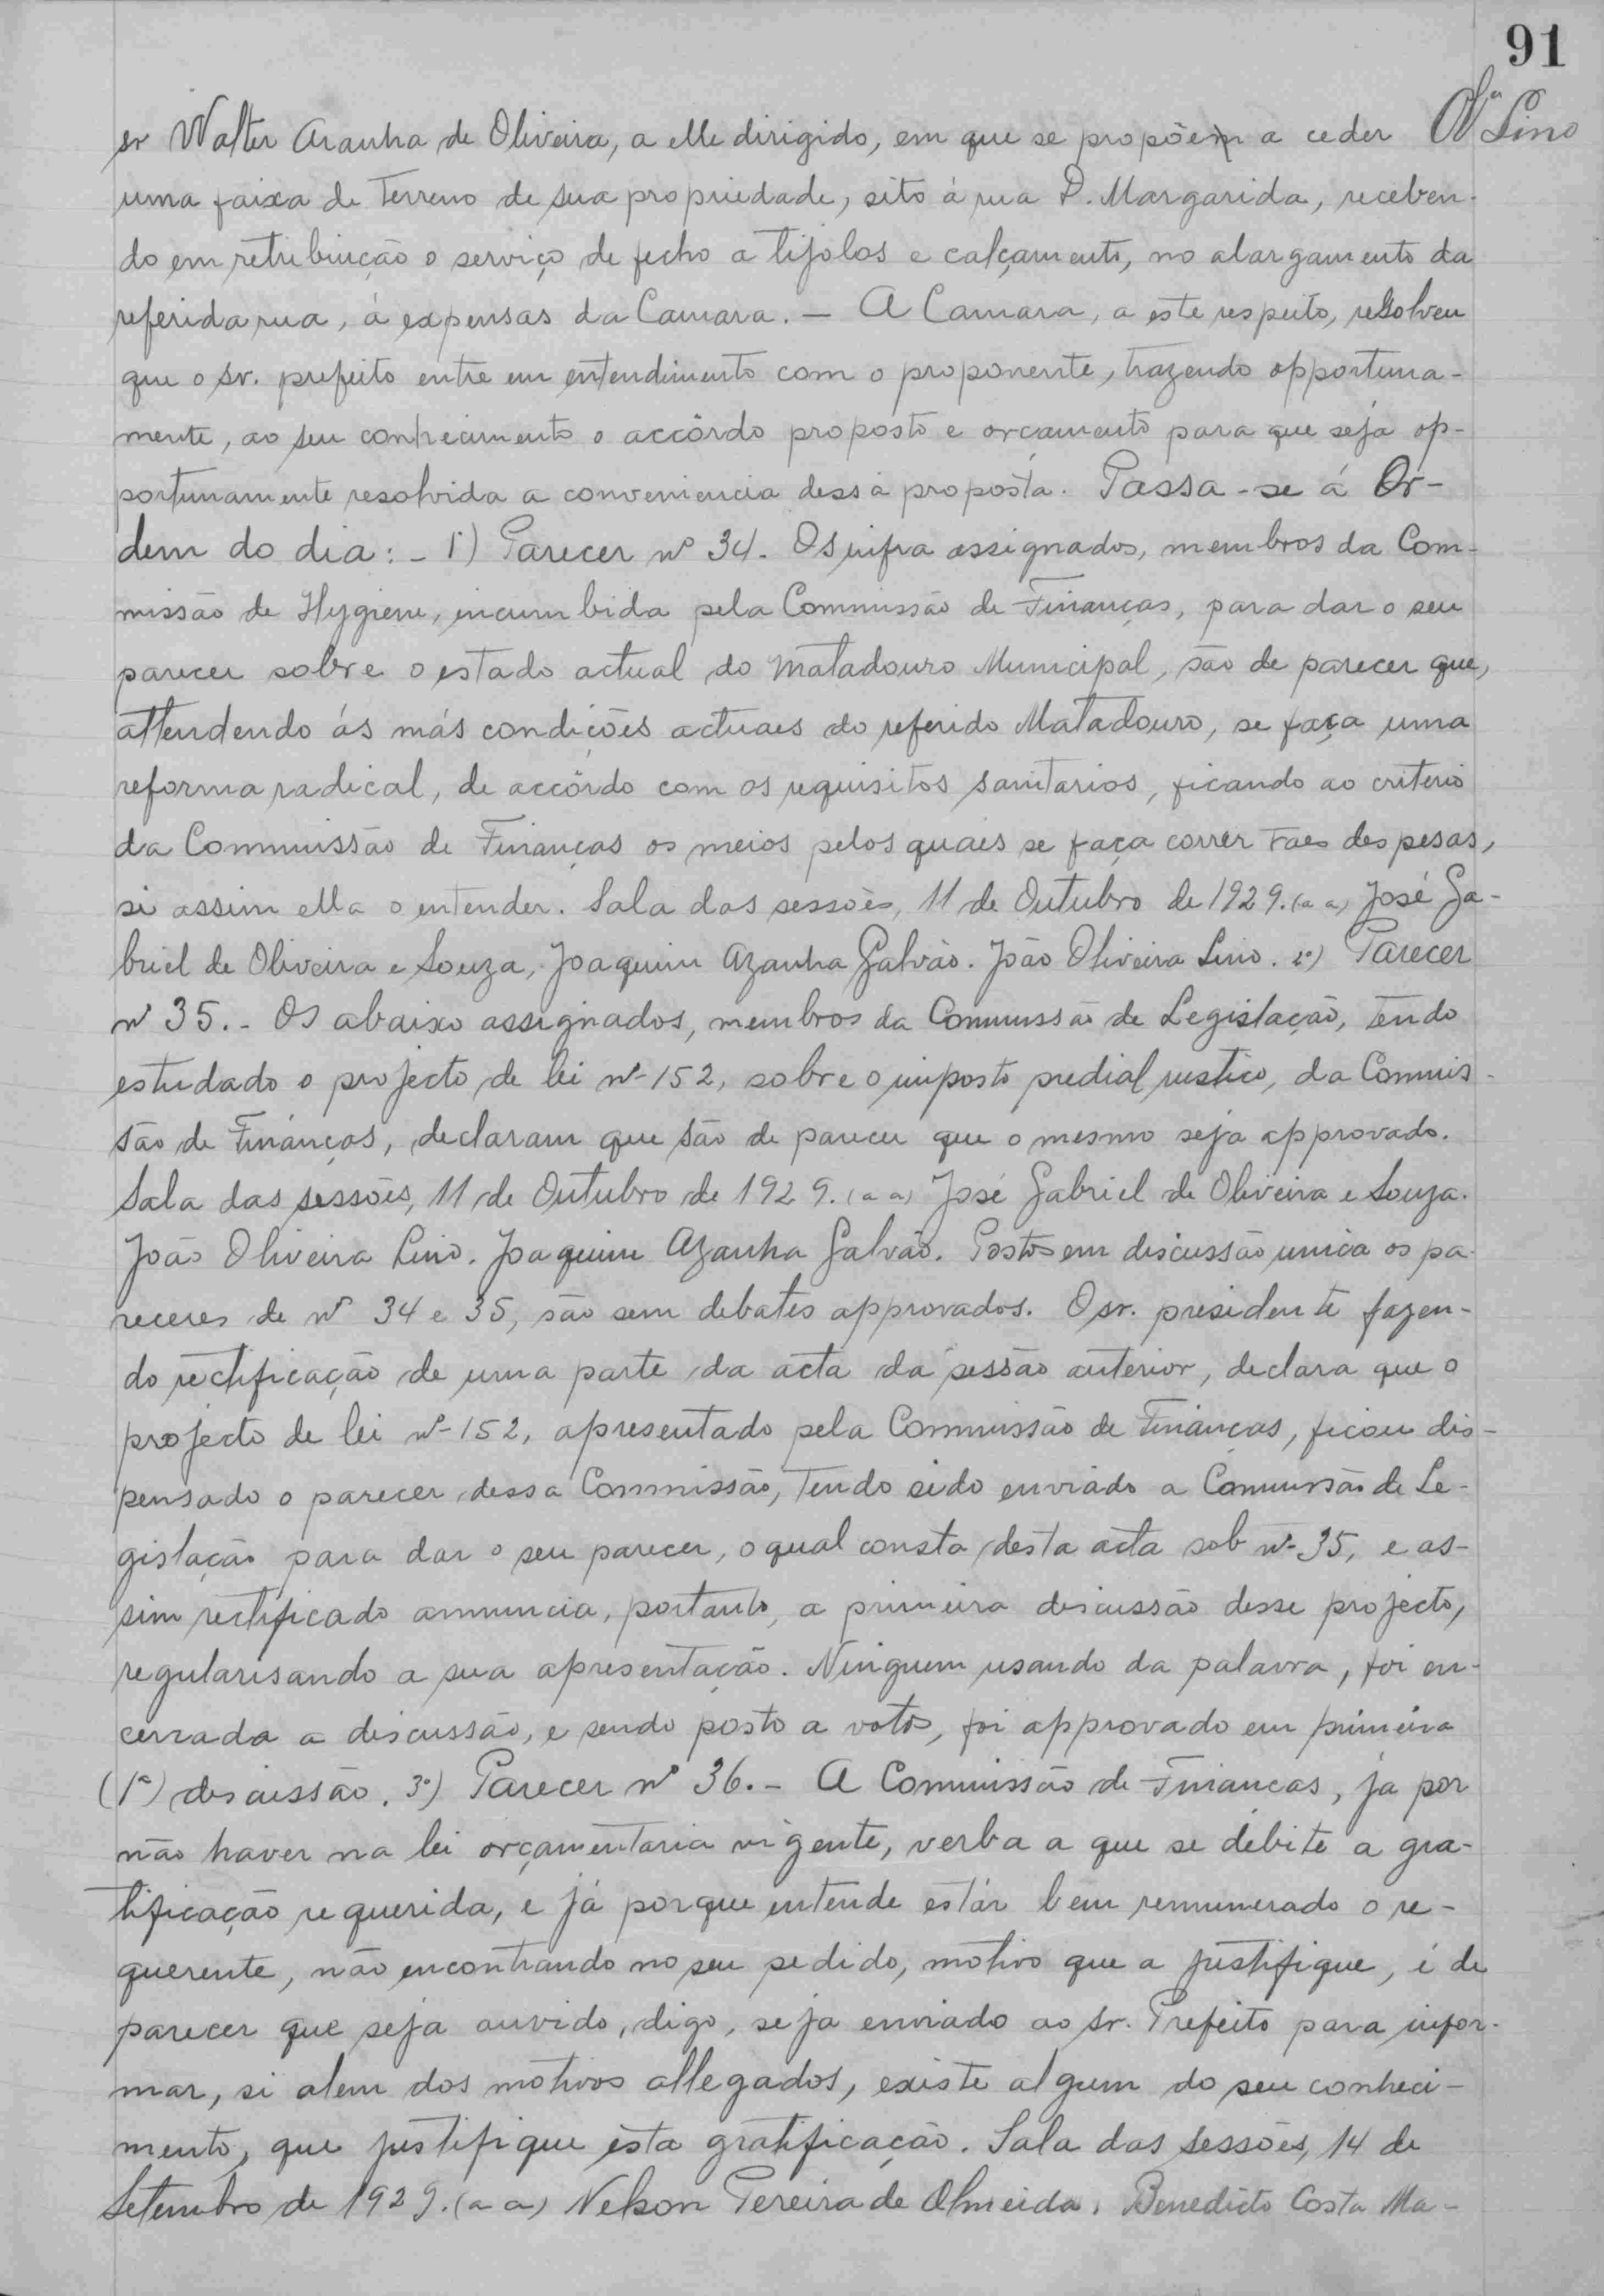 91
Olª Lino
sr Walter Aranha de Oliveira, a elle dirigido, em que se propõem a ceder
uma faixa de terreno de sua propriedade, sito á rua D. Margarida, receben-
do em retribuição o serviço de fecho a tijolos e calçamento, no alargamento da
referida rua, á expensas da Camara. — A Camara, a este respeito, resolveu
que o sr. prefeito entre em entendimento com o proponente, trazendo opportuna-
mente, ao seu conhecimento o accôrdo proposto e orçamento para que seja op-
portunamente resolvida a conveniencia dessa proposta. Passa-se á Or-
dem do dia: - 1º) Parecer nº 34. Os infra assignados, membros da Com-
missão de Hygiene, incumbida pela Commissão de Finanças, para dar o seu
parecer sobre o estado actual do Matadouro Municipal, são de parecer que,
attendendo ás más condições actuaes do referido Matadouro, se faça uma
reforma radical, de accôrdo com os requisitos sanitarios, ficando ao criterio
da Commissão de Finanças os meios pelos quaes se faça correr taes despesas,
si assim ella o entender. Sala das sessões, 11 de Outubro de 1929. (a a) José Ga-
briel de Oliveira e Souza, Joaquim Azanha Galvão. João Oliveira Lino. 2º) Parecer
nº 35. - Os abaixo assignados, membros da Commissão de Legislação, tendo
estudado o projecto de lei nº 152, sobre o imposto predial rustico, da Commis-
são de Finanças, declaram que são de parecer que o mesmo seja approvado.
Sala das sessões, 11 de Outubro de 1929. (a a) José Gabriel de Oliveira e Souza.
João Oliveira Lino. Joaquim Azanha Galvão. Postos em discussão unica os pa-
receres de nº 34 e 35, são sem debates approvados. O sr. presidente fazen-
do rectificação de uma parte da acta da sessão anterior, declara que o
projecto de lei nº 152, apresentado pela Commissão de Finanças, ficou dis-
pensado o parecer dessa Commissão, tendo sido enviado a Commissão de Le-
gislação para dar o seu parecer, o qual consta desta acta sob nº 35, e as-
sim rectificado annuncia, portanto, a primeira discussão desse projecto,
regularisando a sua apresentação. Ninguem usando da palavra, foi en-
cerrada a discussão, e sendo posto a votos, foi approvado em primeira
(1ª) discussão. 3º) Parecer nº 36. - A Commissão de Finanças, já por
não haver na lei orçamentaria vigente, verba a que se débite a gra-
tificação requerida, e já porque entende estár bem remunerado o re-
querente, não encontrando no seu pedido, motivo que a justifique, é de
parecer que seja ouvido, digo, seja enviado ao sr. Prefeito para infor-
mar, si alem dos motivos allegados, existe algum do seu conheci-
mento, que justifique ésta gratificação. Sala das Sessões, 14 de
Setembro de 1929. (a a) Nelson Pereira de Almeida. Benedicto Costa Ma-